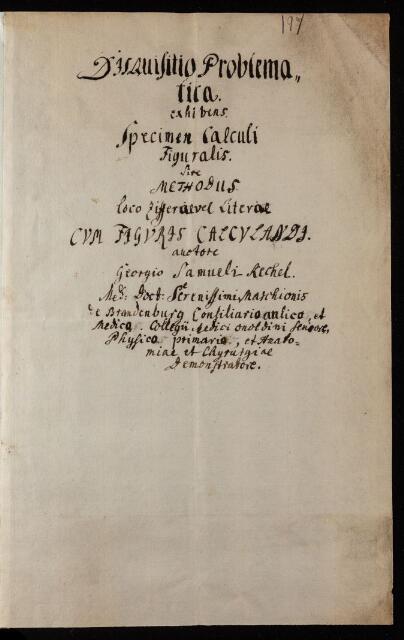 197
Disquisitio Problema„
tica.
exhibens
Specimen Calculi
Figuralis.
Sive
METHODUS
loco Zifferae vel Literae
CVM FIGVRIS CALCVLANDI.
auctore
Georgio Samueli Kechel.
Med: Doct: Serenissimi Maschionis
de Brandenburg Consiliario aulico, et
Medico, Collegii Medici onoldini Seniore,
Physico primario, et Anato-
miae et Chyrurgiae
Demonstratore.